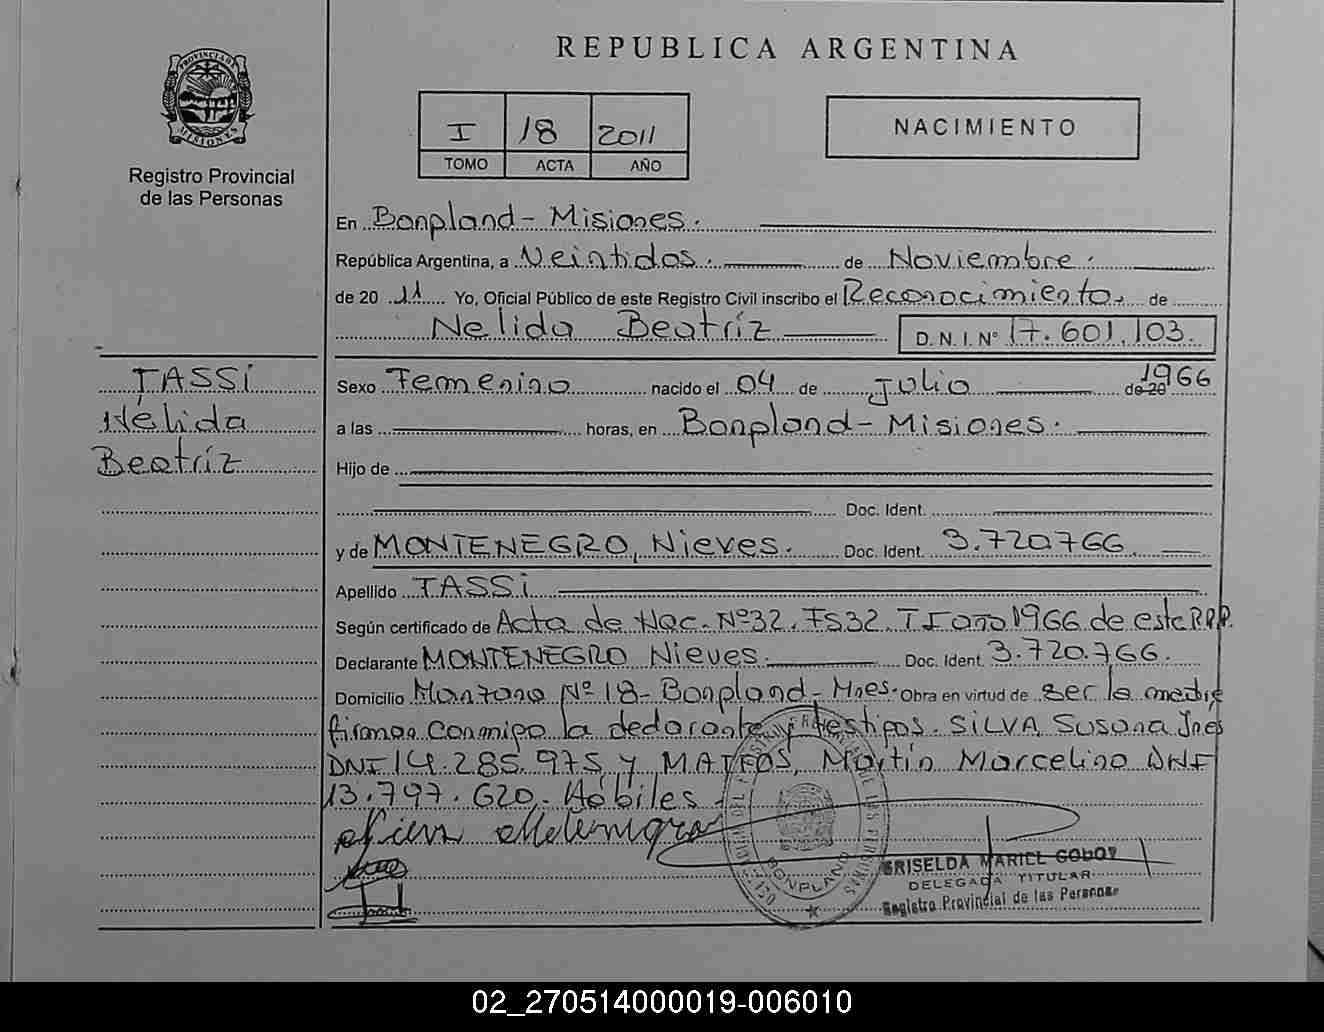 REPUBLICA ARGENTINA
PROVINCIA DE MISIONES
Registro Provincial
de las Personas
I 18 2011
TOMO ACTA AÑO
NACIMIENTO
En Bonpland - Misiones.
República Argentina, a Veintidos. de Noviembre.
de 20 11 Yo, Oficial Público de este Registro Civil inscribo el Reconocimiento. de
Nelida Beatríz D. N. I. N° 17.601.103.
TASSi
Nélida
Beatríz
Sexo Femenino nacido el 04 de Julio de 20 1966
a las horas, en Bonpland - Misiones.
Hijo de
Doc. Ident.
y de MONTENEGRO, Nieves. Doc. Ident. 3.720.766.
Apellido TASSi
Según certificado de Acta de Nac. Nº 32. Fs 32. T I año 1966 de este R.P.P.
Declarante MONTENEGRO Nieves. Doc. Ident. 3.720.766.
Domicilio Manzana Nº 18 - Bonpland - Mnes. Obra en virtud de ser la madre
firman conmigo la declarante y testigos. SILVA Susana Inés
DNI 14.285.975 y MATTOS, Martín Marcelino DNI
13.797.620. Hábiles.
Nieves Montenegro
BONPLAND
GRISELDA MARIEL GODOY
DELEGADA TITULAR
Registro Provincial de las Personas
02_270514000019-006010